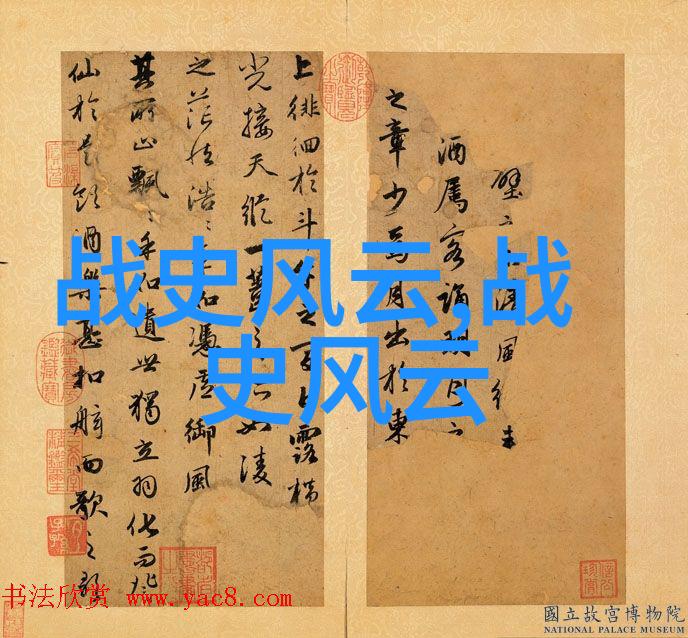 壁 風徐
酒屬客誦明月之
之章少焉月出於東
上徘徊於斗牛之間白露橫
光接天縱一葦之所如凌
之茫然浩〻乎如憑虛御風
其所止飄〻乎如遺世獨立羽化而登
仙於是飲酒樂甚扣舷而歌之歌
战史风云,战
史风云
书法欣赏 www.yac8.com
國立故宮博物院
NATIONAL PALACE MUSEUM